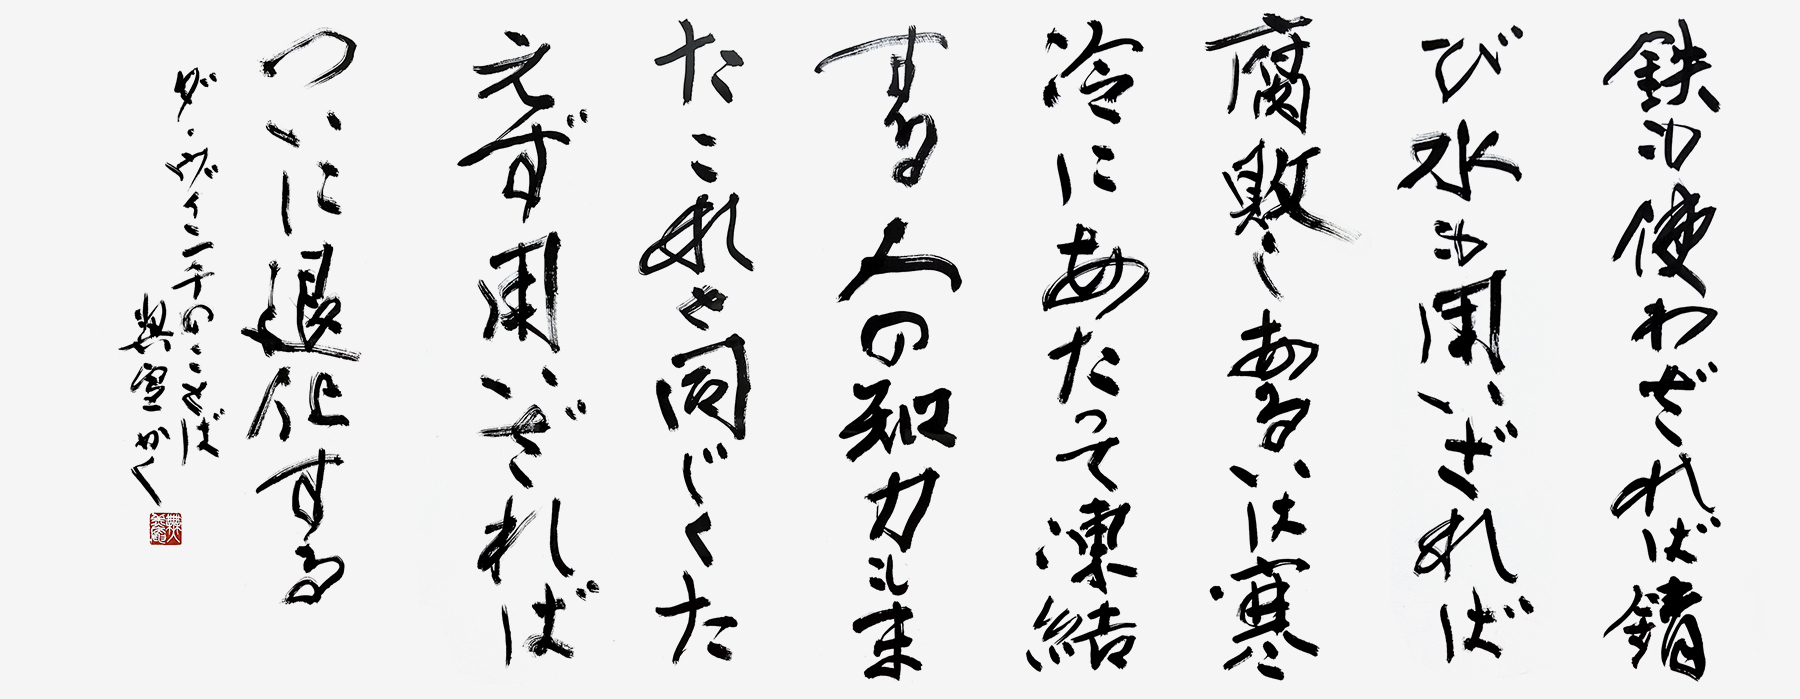 鉄も使わざれば錆
び水も用いざれば
腐敗しあるいは寒
冷にあたって凍結
する人の知力もま
たこれと同じくた
えず用いざれば
ついに退化する
ダ・ヴィンチのことば
興雲かく